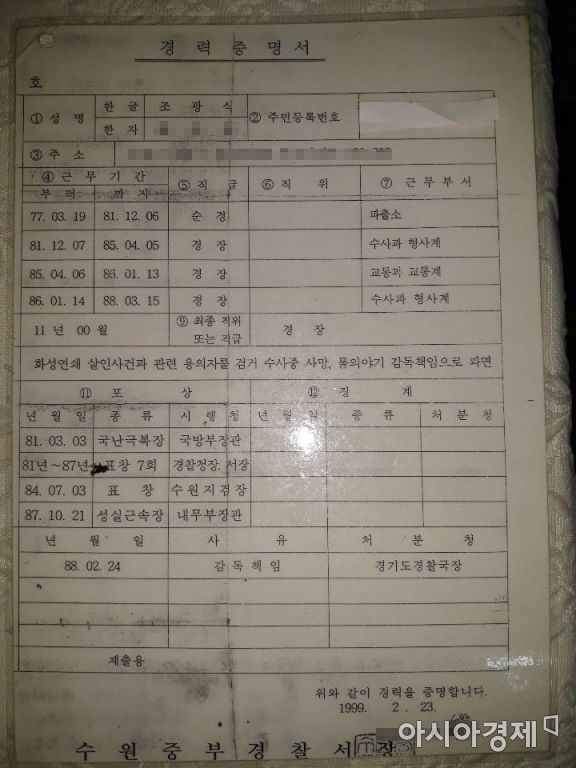 경 력 증 명 서
호
① 성 명 한 글 조 광 식 ② 주민등록번호
한 자
③ 주 소
④ 근 무 기 간 ⑤ 직 급 ⑥ 직 위 ⑦ 근 무 부 서
부 터 까 지
77. 03. 19 81. 12. 06 순 경 파출소
81. 12. 07 85. 04. 05 경 장 수사과 형사계
85. 04. 06 86. 01. 13 경 장 교통과 교통계
86. 01. 14 88. 03. 15 경 장 수사과 형사계
11 년 00 월 ⑨ 최종 직위 또는 직급 경 장
화성연쇄 살인사건과 관련 용의자를 검거 수사중 사망, 물의야기 감독책임으로 파면
⑪ 포 상 ⑫ 징 계
년 월 일 종 류 시 행 청 년 월 일 종 류 처 분 청
81. 03. 03 국난극복장 국방부장관
81년~87년 표창 7회 경찰청장, 서장
84. 07. 03 표 창 수원지검장
87. 10. 21 성실근속장 내무부장관
년 월 일 사 유 처 분 청
88. 02. 24 감독책임 경기도경찰국장
제출용
위와 같이 경력을 증명합니다.
1999. 2. 23.
수 원 중 부 경 찰 서 장
아시아경제